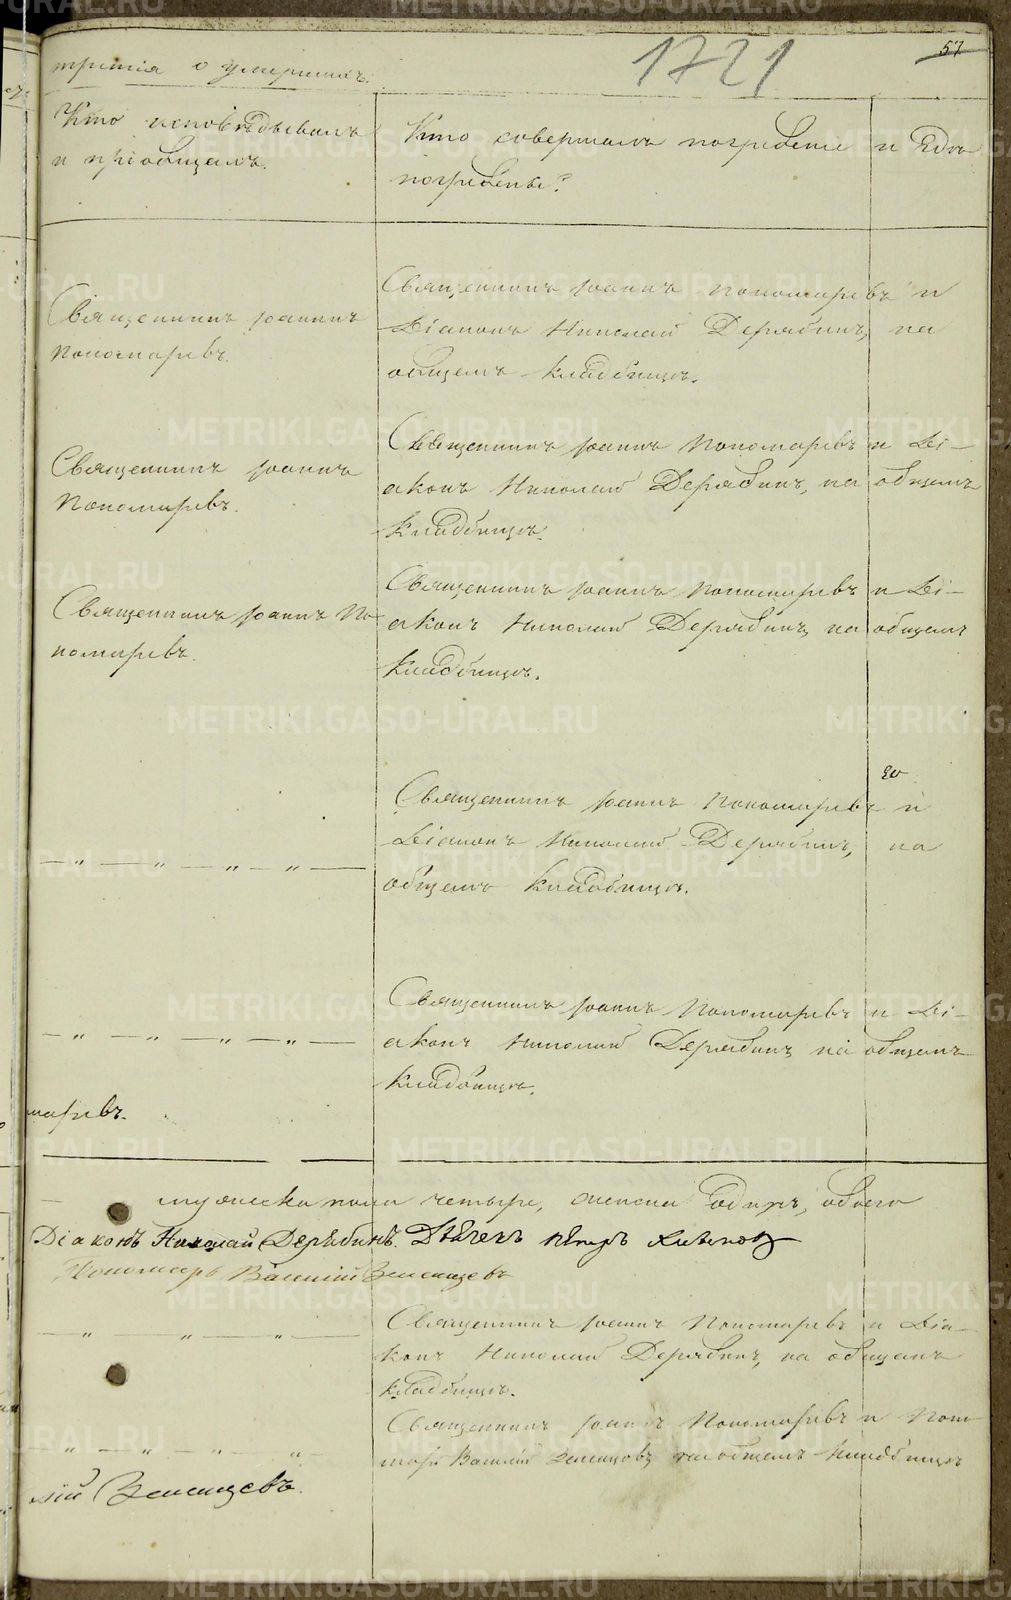 третія о умершихъ.
1721
57
Кто исповѣдывалъ
и пріобщалъ.
Кто совершалъ погребеніе и гдѣ
погребены?
Священникъ Іоаннъ
Пономаревъ.
Священникъ Іоаннъ Пономаревъ и
Діаконъ Николай Дерябинъ, на
общемъ кладбищѣ.
Священникъ Іоаннъ
Пономаревъ.
Священникъ Іоаннъ Пономаревъ и Ді-
аконъ Николай Дерябинъ, на общемъ
кладбищѣ.
Священникъ Іоаннъ По-
номаревъ.
Священникъ Іоаннъ Пономаревъ и Ді-
аконъ Николай Дерябинъ, на общемъ
кладбищѣ.
— „ — „ — „ — „ —
Священникъ Іоаннъ Пономаревъ и
Діаконъ Николай Дерябинъ, на
общемъ кладбищѣ.
— „ — „ — „ — „ —
Священникъ Іоаннъ Пономаревъ и Ді-
аконъ Николай Дерябинъ, на общемъ
кладбищѣ.
маревъ.
мужеска пола четыре, женска одинъ, обоего
Діаконъ Николай Дерябинъ. Дьячекъ Петръ
Пономарь ВасилійЗемляцевъ
— „ — „ — „ —
Священникъ Іоаннъ Пономаревъ и Діа-
конъ Николай Дерябинъ, на общемъ
кладбищѣ.
„ — „ — „ — „ —
Священникъ Іоаннъ Пономаревъ и Поно-
марь Василій на общемъ кладбищѣ
лій
METRIKI.GASO-URAL.RU